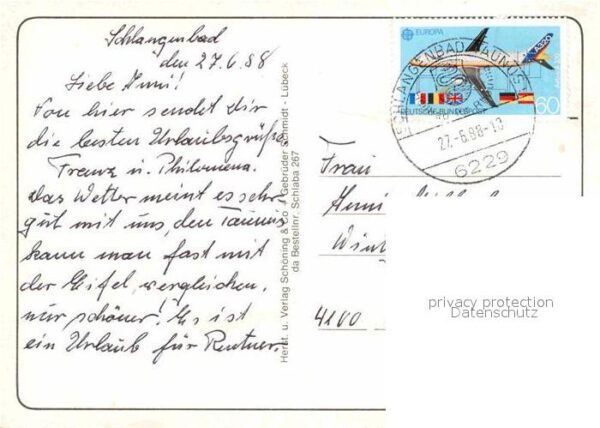 Schlangenbad
den 27.6.88
Liebe Anni!
Von hier sendet Dir
die besten Urlaubsgrüße
Franz u. Philomena.
das Wetter meint es sehr
gut mit uns, den Taunus
kann man fast mit
der Eifel vergleichen,
nur schöner! Es ist
ein Urlaub für Rentner.
Herst. u. Verlag Schöning & Co + Gebrüder Schmidt - Lübeck
da Bestellnr. Schlaba 267
EUROPA
60
DEUTSCHE BUNDESPOST
SCHLANGENBAD, TAUNUS
27.-6.88-10
6229
Frau
Anni
4100
privacy protection
Datenschutz